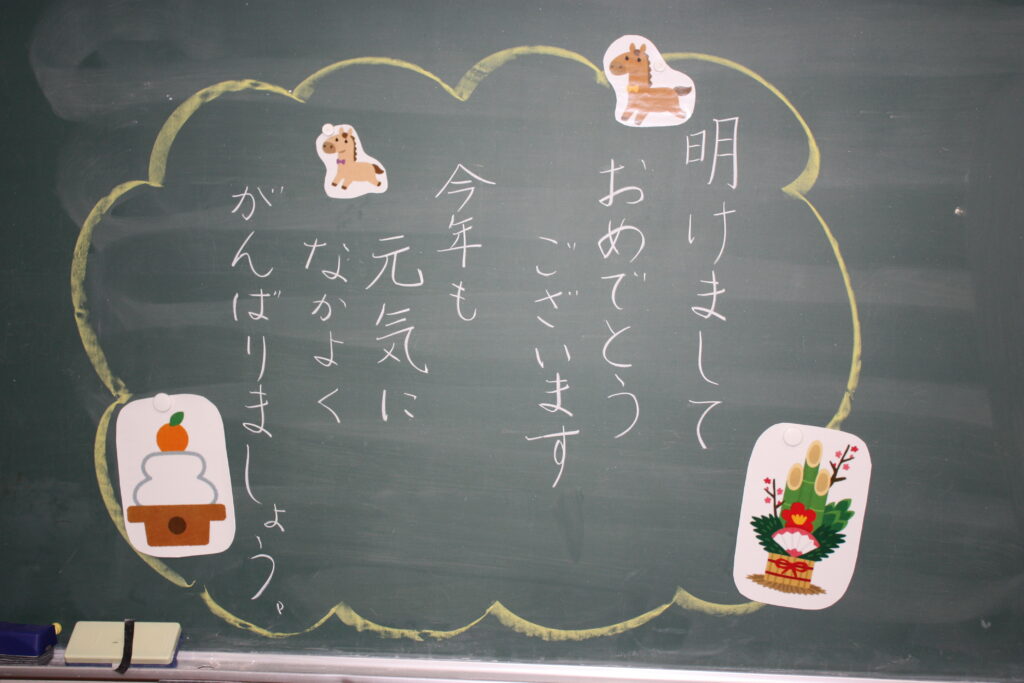 明けまして
おめでとう
ございます
今年も
元気に
なかよく
がんばりましょう。